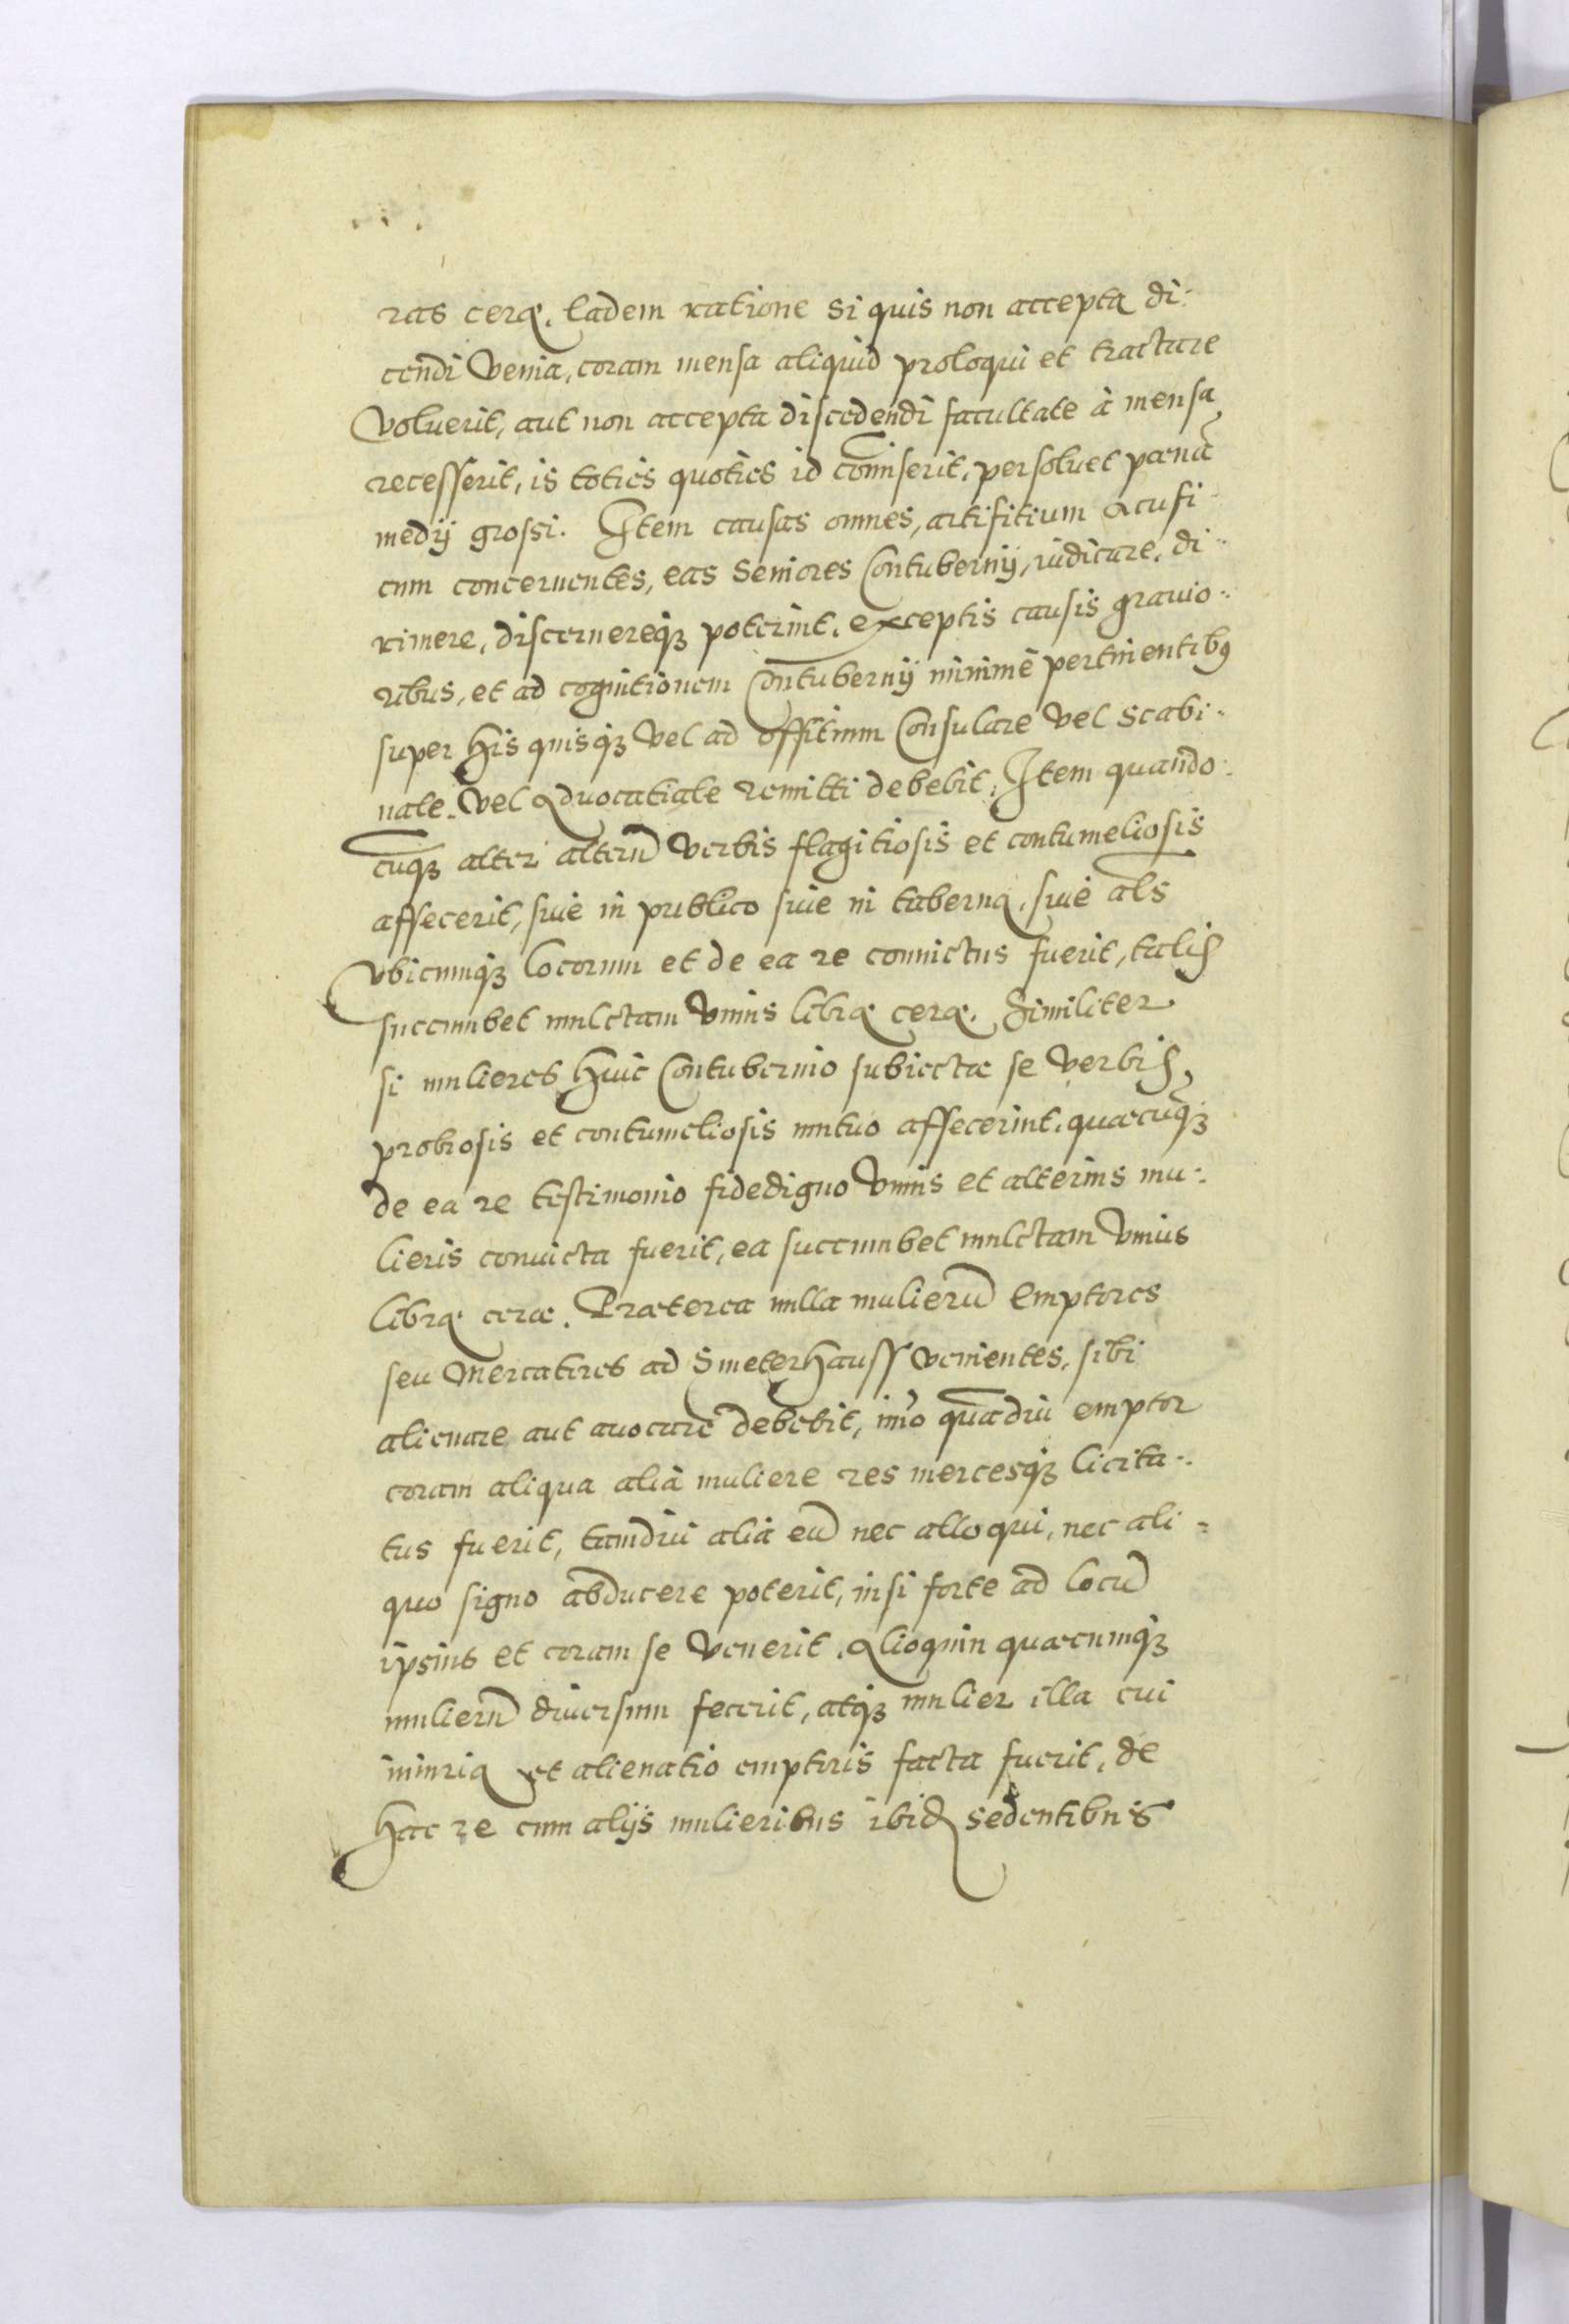 ras ceræ. Eadem ratione si quis non accepta di-
cendi venia, coram mensa aliquid proloqui et tractare
voluerit, aut non accepta discedendi facultate à mensa
recesserit, is toties quoties id com̄iserit, persoluet pœnā
medij grossi. Item causas omnes, artifitium Acufi-
cum concernentes, eas Seniores Contubernij, iudicare, di-
rimere, discernereq́ꝫ poterint, exceptis causis grauio-
ribus, et ad cognitionem Contubernij minimè pertinentibꝰ
super his quisq́ꝫ vel ad offitium Consulare vel Scabi-
nale. vel Aduocatiale remitti debebit. Item quando-
cūq́ꝫ alter alterū verbis flagitiosis et contumeliosis
affecerit, siue in publico siue in taberna, siue al̄s
vbicumq́ꝫ locorum et de ea re conuictus fuerit, talis
succumbet mulctam vnius libræ ceræ. Similiter
si mulieres huic Contubernio subiectæ se verbis
probrosis et contumeliosis mutuo affecerint, quæcūq́ꝫ
de ea re testimonio fidedigno vnius et alterius mu-
lieris conuicta fuerit, ea succumbet mulctam vnius
libræ ceræ. Præterea nulla mulierū Emptores
seu Mercatores ad Smeterhauss venientes, sibi
alienare aut auocare debebit, imò quādiu emptor
coram aliqua alia muliere res mercesq́ꝫ licita-
tus fuerit, tamdiu alia eū nec alloqui, nec ali-
quo signo abducere poterit, nisi forte ad locū
ipsius et coram se venerit. Alioquin quæcumq́ꝫ
mulierū diuersum fecerit, atq́ꝫ mulier illa cui
iniuria et alienatio emptoris facta fuerit, de
hac re cum alijs mulieribus ibidē sedentibus